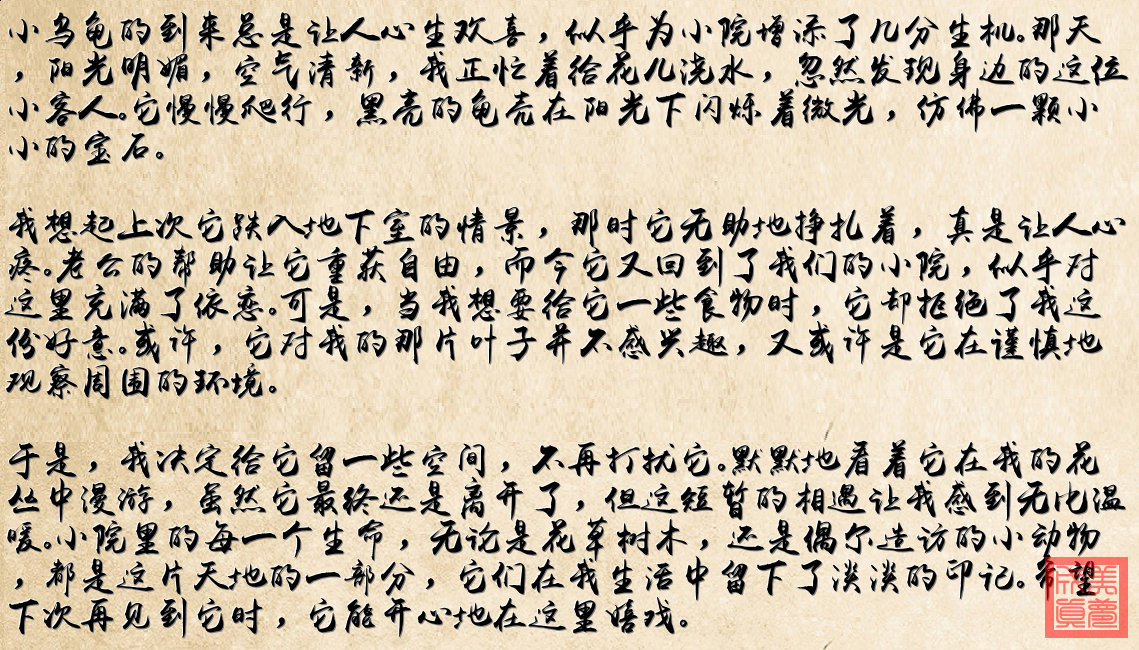 小乌龟的到来总是让人心生欢喜，似乎为小院增添了几分生机。那天
，阳光明媚，空气清新，我正忙着给花儿浇水，忽然发现身边的这位
小客人。它慢慢爬行，黑亮的龟壳在阳光下闪烁着微光，仿佛一颗小
小的宝石。
我想起上次它跌入地下室的情景，那时它无助地挣扎着，真是让人心
疼。老公的帮助让它重获自由，而今它又回到了我们的小院，似乎对
这里充满了依恋。可是，当我想要给它一些食物时，它却拒绝了我这
份好意。或许，它对我的那片叶子并不感兴趣，又或许是它在谨慎地
观察周围的环境。
于是，我决定给它留一些空间，不再打扰它。默默地看着它在我的花
丛中漫游，虽然它最终还是离开了，但这短暂的相遇让我感到无比温
暖。小院里的每一个生命，无论是花草树木，还是偶尔造访的小动物
，都是这片天地的一部分，它们在我生活中留下了淡淡的印记。希望
下次再见到它时，它能开心地在这里嬉戏。